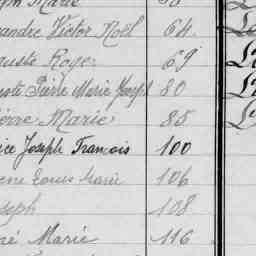 Marie
andre Victor Noël 64
guste Roger 69
Pierre Marie Joseph 80
ierre Marie 85
ice Joseph François 100
ene Louis Marie 106
seph 108
né Marie 116